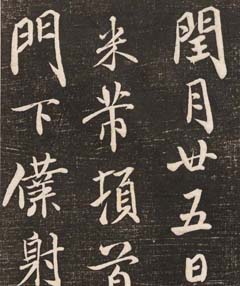 閏月廿五日
米芾頓首
門下僕射